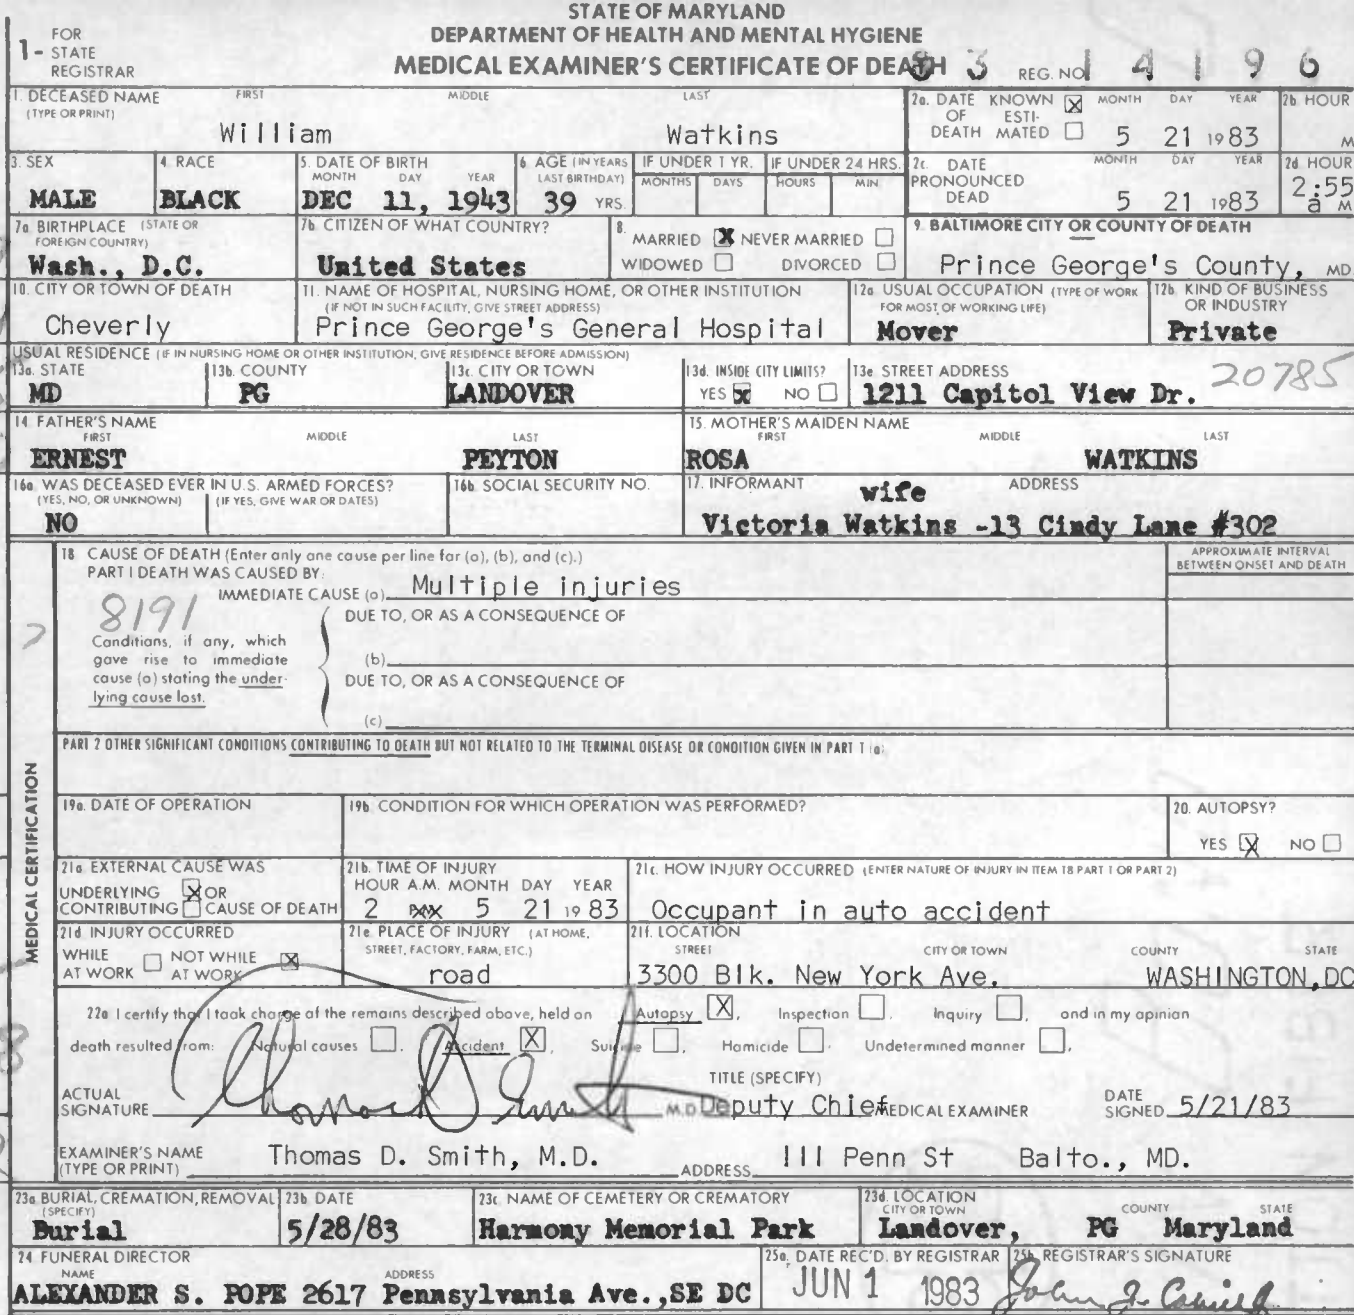 STATE OF MARYLAND
DEPARTMENT OF HEALTH AND MENTAL HYGIENE
MEDICAL EXAMINER'S CERTIFICATE OF DEATH
1- FOR STATE REGISTRAR
83 REG. NO 14196
1. DECEASED NAME (TYPE OR PRINT) FIRST MIDDLE LAST
William Watkins
2a. DATE OF DEATH KNOWN ☒ ESTIMATED ☐ MONTH DAY YEAR 2b. HOUR
5 21 1983 M
3. SEX 4. RACE 5. DATE OF BIRTH MONTH DAY YEAR 6. AGE (IN YEARS LAST BIRTHDAY) IF UNDER 1 YR. MONTHS DAYS IF UNDER 24 HRS. HOURS MIN
MALE BLACK DEC 11, 1943 39 YRS.
2c. DATE PRONOUNCED DEAD MONTH DAY YEAR 2d. HOUR
5 21 1983 2:55 a M
7a. BIRTHPLACE (STATE OR FOREIGN COUNTRY) 7b. CITIZEN OF WHAT COUNTRY?
Wash., D.C. United States
8. MARRIED ☒ NEVER MARRIED ☐
WIDOWED ☐ DIVORCED ☐
9. BALTIMORE CITY OR COUNTY OF DEATH
Prince George's County, MD
10. CITY OR TOWN OF DEATH
Cheverly
11. NAME OF HOSPITAL, NURSING HOME, OR OTHER INSTITUTION
(IF NOT IN SUCH FACILITY, GIVE STREET ADDRESS)
Prince George's General Hospital
12a. USUAL OCCUPATION (TYPE OF WORK FOR MOST OF WORKING LIFE)
Mover
12b. KIND OF BUSINESS OR INDUSTRY
Private
USUAL RESIDENCE (IF IN NURSING HOME OR OTHER INSTITUTION, GIVE RESIDENCE BEFORE ADMISSION)
13a. STATE 13b. COUNTY 13c. CITY OR TOWN 13d. INSIDE CITY LIMITS? 13e. STREET ADDRESS 20785
MD PG LANDOVER YES ☒ NO ☐ 1211 Capitol View Dr.
14. FATHER'S NAME FIRST MIDDLE LAST
ERNEST PEYTON
15. MOTHER'S MAIDEN NAME FIRST MIDDLE LAST
ROSA WATKINS
16a. WAS DECEASED EVER IN U.S. ARMED FORCES?
(YES, NO, OR UNKNOWN) (IF YES, GIVE WAR OR DATES)
NO
16b. SOCIAL SECURITY NO.
17. INFORMANT wife ADDRESS
Victoria Watkins -13 Cindy Lane #302
MEDICAL CERTIFICATION
18 CAUSE OF DEATH (Enter only one cause per line for (a), (b), and (c).)
PART I DEATH WAS CAUSED BY:
IMMEDIATE CAUSE (a) Multiple injuries
APPROXIMATE INTERVAL BETWEEN ONSET AND DEATH
8191
Conditions, if any, which gave rise to immediate cause (a) stating the underlying cause last.
DUE TO, OR AS A CONSEQUENCE OF
(b)
DUE TO, OR AS A CONSEQUENCE OF
(c)
PART 2 OTHER SIGNIFICANT CONDITIONS CONTRIBUTING TO DEATH BUT NOT RELATED TO THE TERMINAL DISEASE OR CONDITION GIVEN IN PART 1 (a)
19a. DATE OF OPERATION
19b. CONDITION FOR WHICH OPERATION WAS PERFORMED?
20. AUTOPSY?
YES ☒ NO ☐
21a. EXTERNAL CAUSE WAS
UNDERLYING ☒ OR
CONTRIBUTING ☐ CAUSE OF DEATH
21b. TIME OF INJURY
HOUR A.M. MONTH DAY YEAR
2 5 21 1983
21c. HOW INJURY OCCURRED (ENTER NATURE OF INJURY IN ITEM 18 PART 1 OR PART 2)
Occupant in auto accident
21d. INJURY OCCURRED
WHILE AT WORK ☐ NOT WHILE AT WORK ☒
21e. PLACE OF INJURY (AT HOME, STREET, FACTORY, FARM, ETC.)
road
21f. LOCATION STREET CITY OR TOWN COUNTY STATE
3300 Blk. New York Ave. WASHINGTON, DC
22a I certify that I took charge of the remains described above, held on Autopsy ☒, Inspection ☐. Inquiry ☐, and in my opinion
death resulted from: Natural causes ☐. Accident ☒, Suicide ☐, Homicide ☐. Undetermined manner ☐.
TITLE (SPECIFY)
ACTUAL SIGNATURE M.D. Deputy Chief MEDICAL EXAMINER DATE SIGNED 5/21/83
EXAMINER'S NAME (TYPE OR PRINT) Thomas D. Smith, M.D. ADDRESS 111 Penn St Balto., MD.
23a. BURIAL, CREMATION, REMOVAL (SPECIFY) 23b. DATE 23c. NAME OF CEMETERY OR CREMATORY 23d. LOCATION CITY OR TOWN COUNTY STATE
Burial 5/28/83 Harmony Memorial Park Landover, PG Maryland
24. FUNERAL DIRECTOR
NAME ADDRESS
ALEXANDER S. POPE 2617 Pennsylvania Ave.,SE DC
25a. DATE REC'D. BY REGISTRAR
JUN 1 1983
25b. REGISTRAR'S SIGNATURE